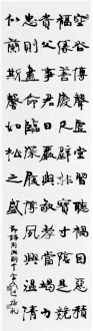 空谷傳聲虛堂習聽禍因惡積
福緣善慶尺璧非寶寸陰是競
資父事君曰嚴與敬孝當竭力
忠則盡命臨深履薄夙興溫清
似蘭斯馨如松之盛
節錄周興嗣千字文